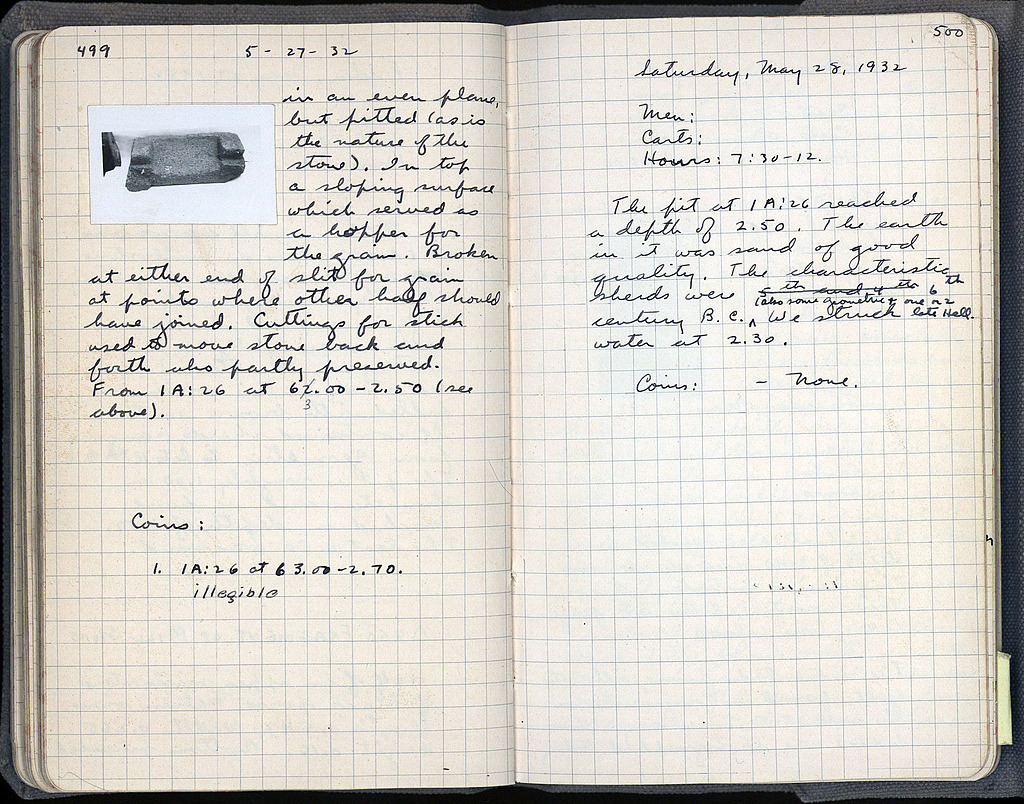 499
5 - 27 - 32
in an even plane,
but pitted (as is
the nature of the
stone). In top
a sloping surface
which served as
a hopper for
the grain. Broken
at either end of slit for grain
at points where other half should
have joined. Cuttings for stick
used to move stone back and
forth also partly preserved.
From 1A:26 at 62.00 - 2.50 (see
3
above).
Coins:
1. 1A:26 at 63.00 - 2.70.
illegible
500
Saturday, May 28, 1932
Men:
Carts:
Hours: 7:30-12.
The pit at 1A:26 reached
a depth of 2.50. The earth
in it was sand of good
quality. The characteristic
sherds were 5th and 4th 6th
(also some geometric & one or 2
century B.C. ^ We struck late Hell.
water at 2.30.
Coins: - None.